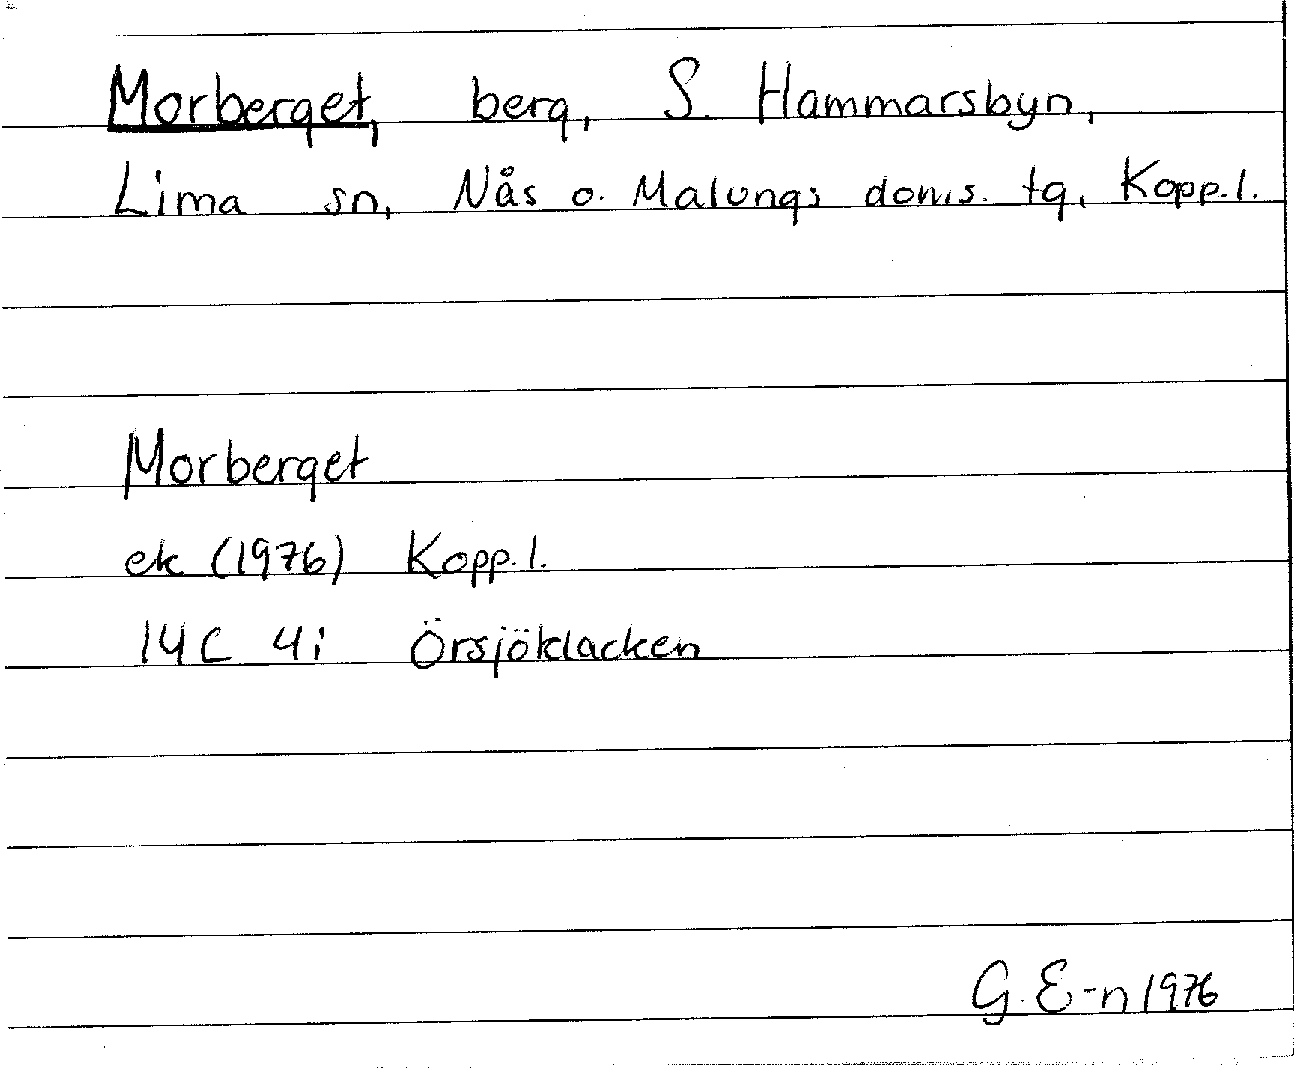 Morberget, berg, S. Hammarsbyn,
Lima sn, Nås o. Malungs doms. tg, Kopp. l.
Morberget
ek (1976) Kopp. l.
14C 4i Örsjöklacken
G. E-n 1976